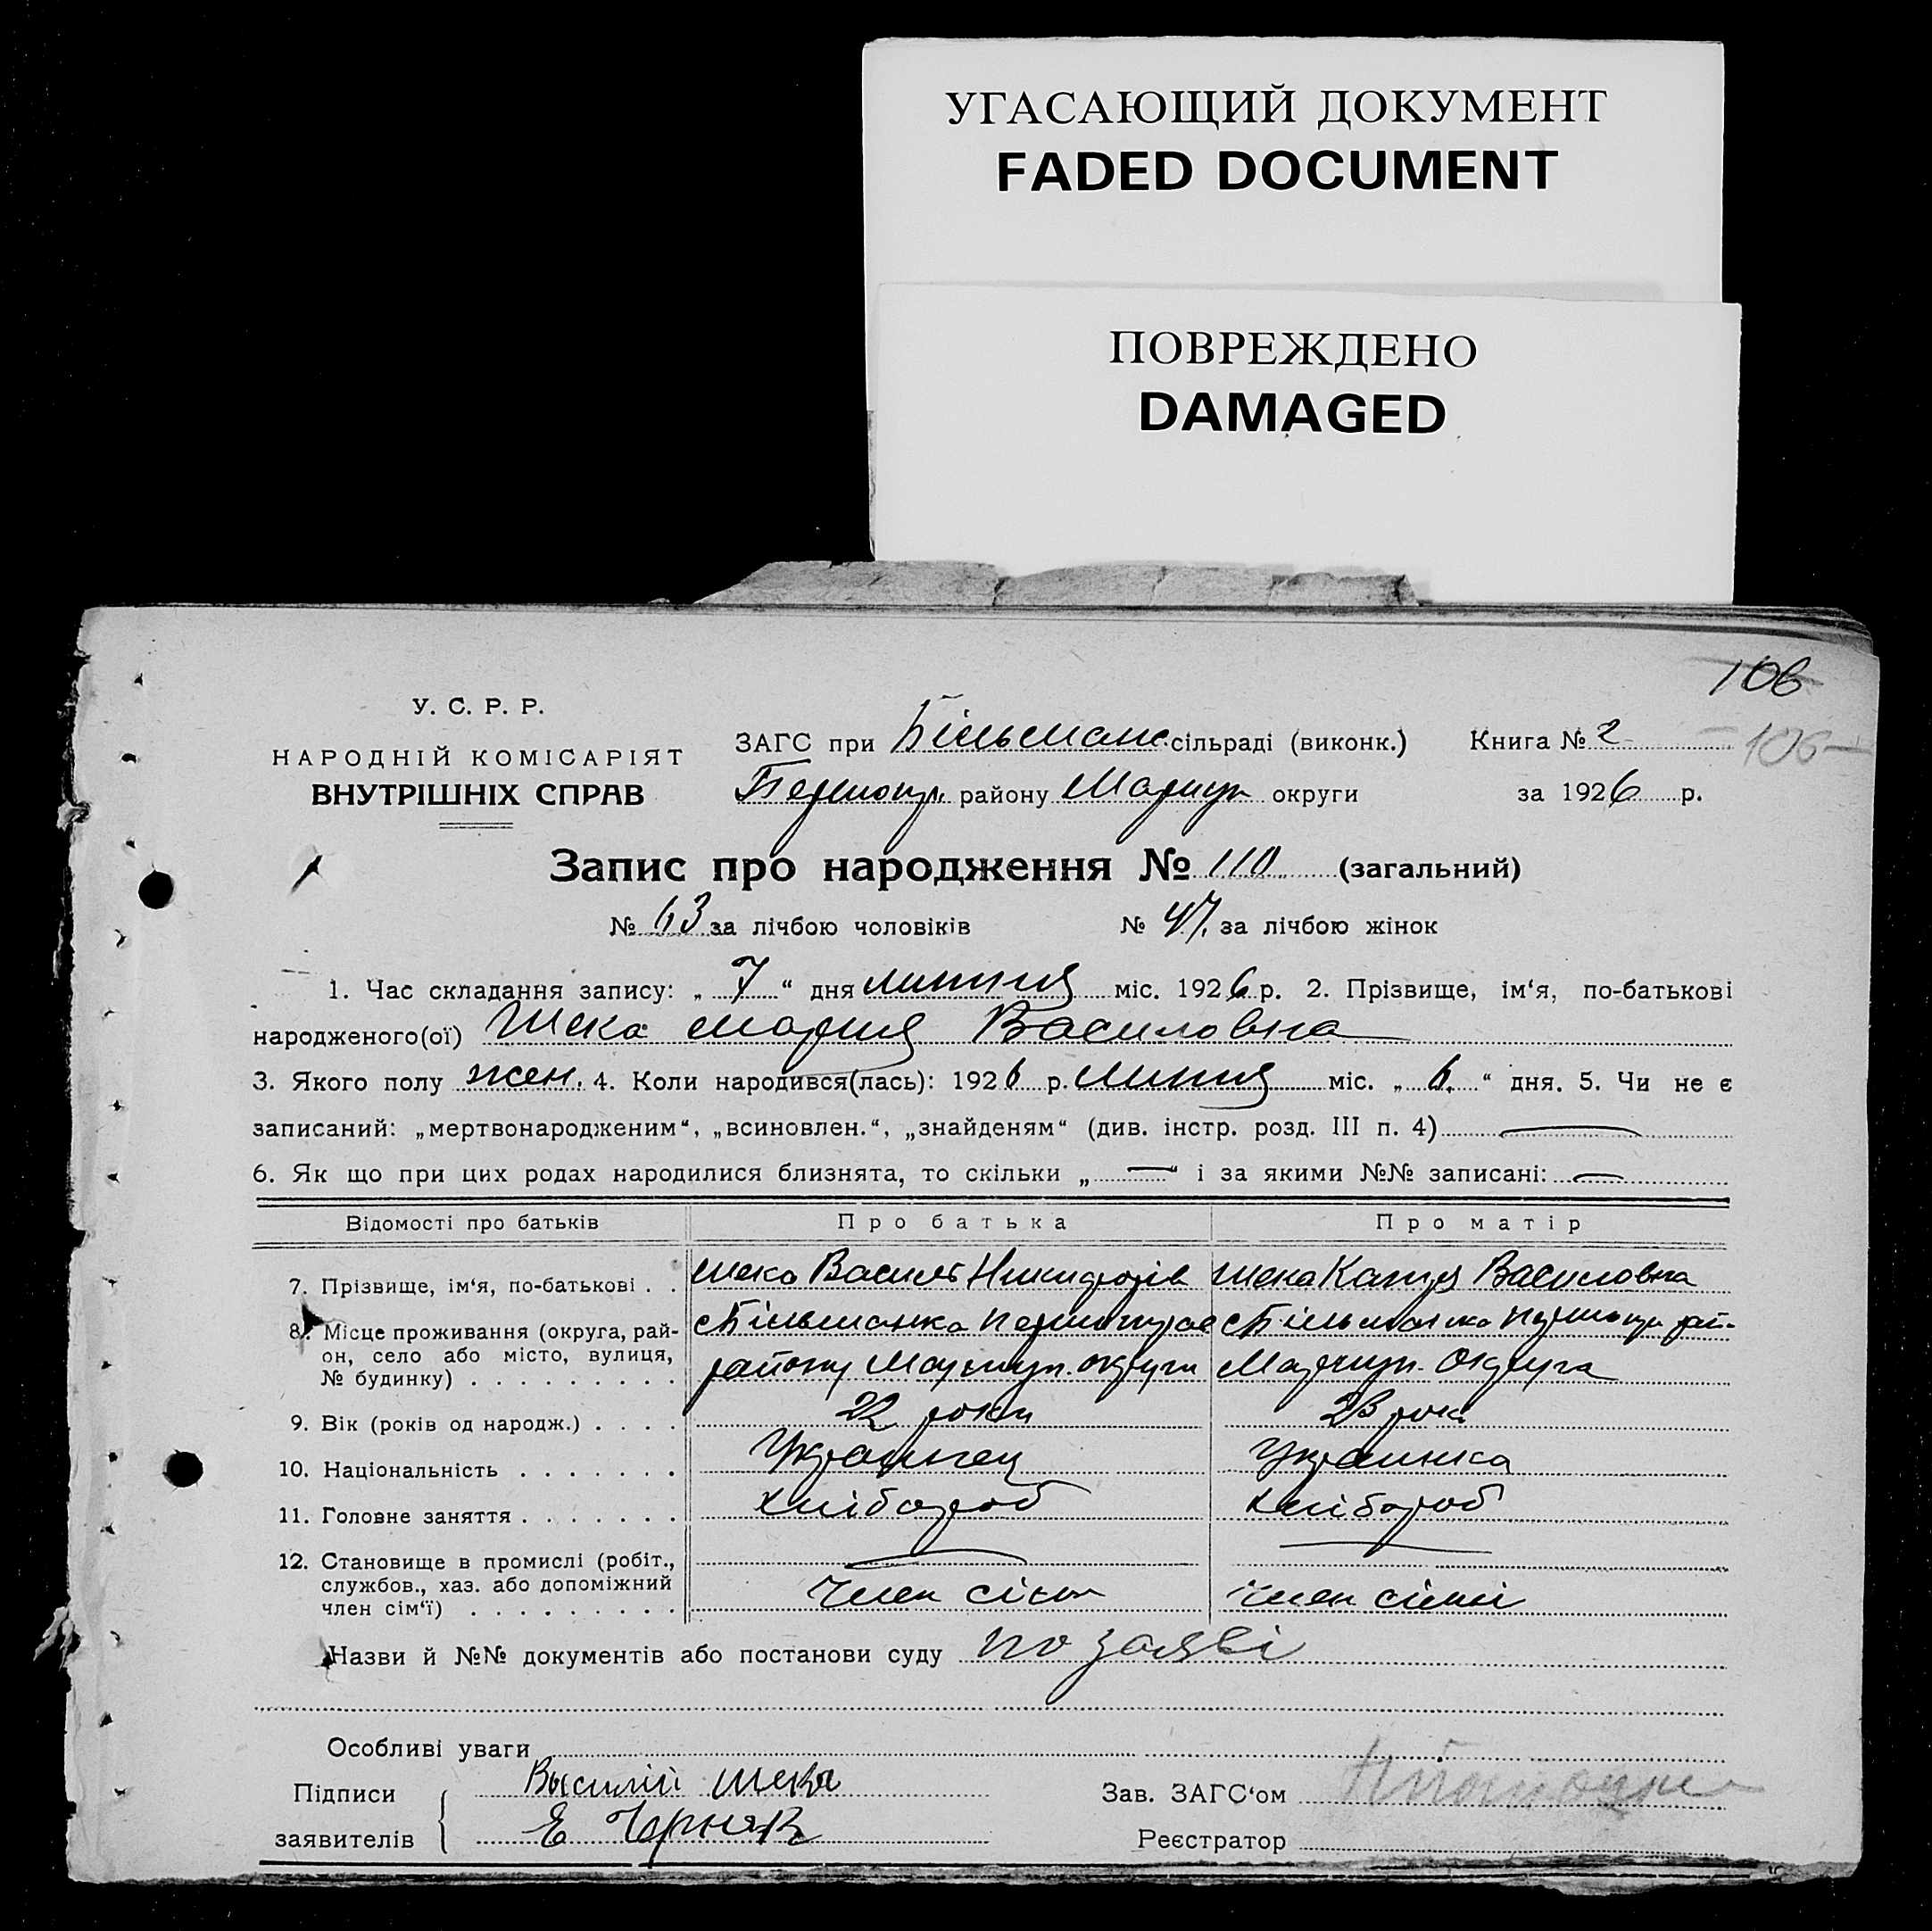 УГАСАЮЩИЙ ДОКУМЕНТ
FADED DOCUMENT
ПОВРЕЖДЕНО
DAMAGED
106
106
У. С. Р. Р.
НАРОДНІЙ КОМІСАРІЯТ
ВНУТРІШНІХ СПРАВ
ЗАГС при Більманс. сільраді (виконк.) Книга № 2
Першопр. району Маріуп округи за 1926 р.
Запис про народження № 110 (загальний)
№ 63 за лічбою чоловіків № 47. за лічбою жінок
1. Час складання запису: „ 7 “ дня липня міс. 1926 р. 2. Прізвище, ім‘я, по-батькові
народженого(ої) Шека Мария Василовна
3. Якого полу жен. 4. Коли народився(лась): 1926 р. Липня міс. „ 6. “ дня. 5. Чи не є
записаний: „мертвонародженим“, „всиновлен.“, „знайденям“ (див. інстр. розд. III п. 4)
6. Як що при цих родах народилися близнята, то скільки „ — “ і за якими №№ записані: —
Відомості про батьків Про батька Про матір
7. Прізвище, ім‘я, по-батькові . . Шека Василь Никифорів Шека Василовна
8. Місце проживання (округа, рай- с Більманка с Більманка рай-
он, село або місто, вулиця,
№ будинку) . . . . . . . . . району Маріуп. округи Маріуп. Округа
9. Вік (років од народж.) . . . . 22 роки 23 рока
10. Національність . . . . . . . Українец Украинка
11. Головне заняття . . . . . . . хлібороб хлібороб
12. Становище в промислі (робіт.,
службов., хаз. або допоміжний
член сім‘ї) . . . . . . . . . член сімі член сімьі
Назви й №№ документів або постанови суду по заяві
Особливі уваги
Підписи Василій Шека Зав. ЗАГС‘ом
заявителів Е Черняк Реєстратор